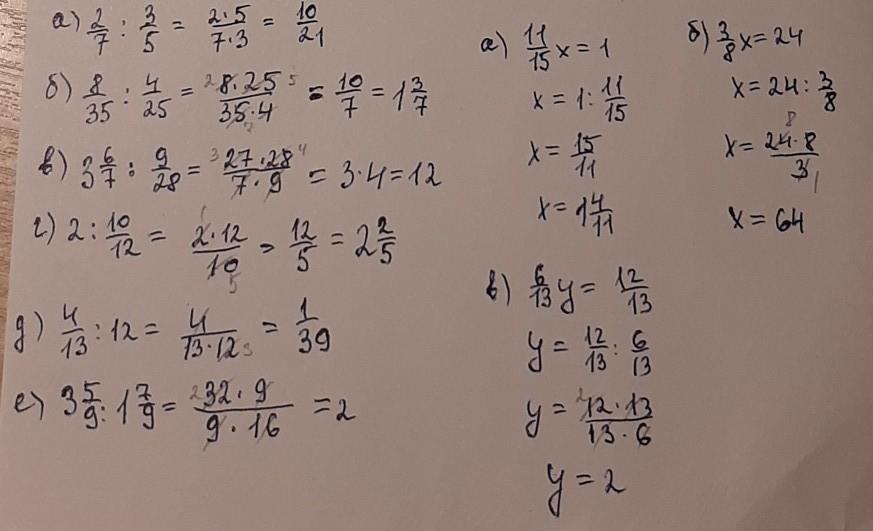 а) 2/7 : 3/5 = 2·5/7·3 = 10/21
б) 8/35 : 4/25 = 8·25/35·4 = 10/7 = 1 3/7
в) 3 6/7 : 9/28 = 27·28/7·9 = 3·4 = 12
г) 2 : 10/12 = 2·12/10 = 12/5 = 2 2/5
д) 4/13 : 12 = 4/13·12 = 1/39
е) 3 5/9 : 1 7/9 = 32·9/9·16 = 2
а) 11/15 x = 1
x = 1 : 11/15
x = 15/11
x = 1 4/11
б) 3/8 x = 24
x = 24 : 3/8
x = 24·8/3
x = 64
в) 6/13 y = 12/13
y = 12/13 : 6/13
y = 12·13/13·6
y = 2